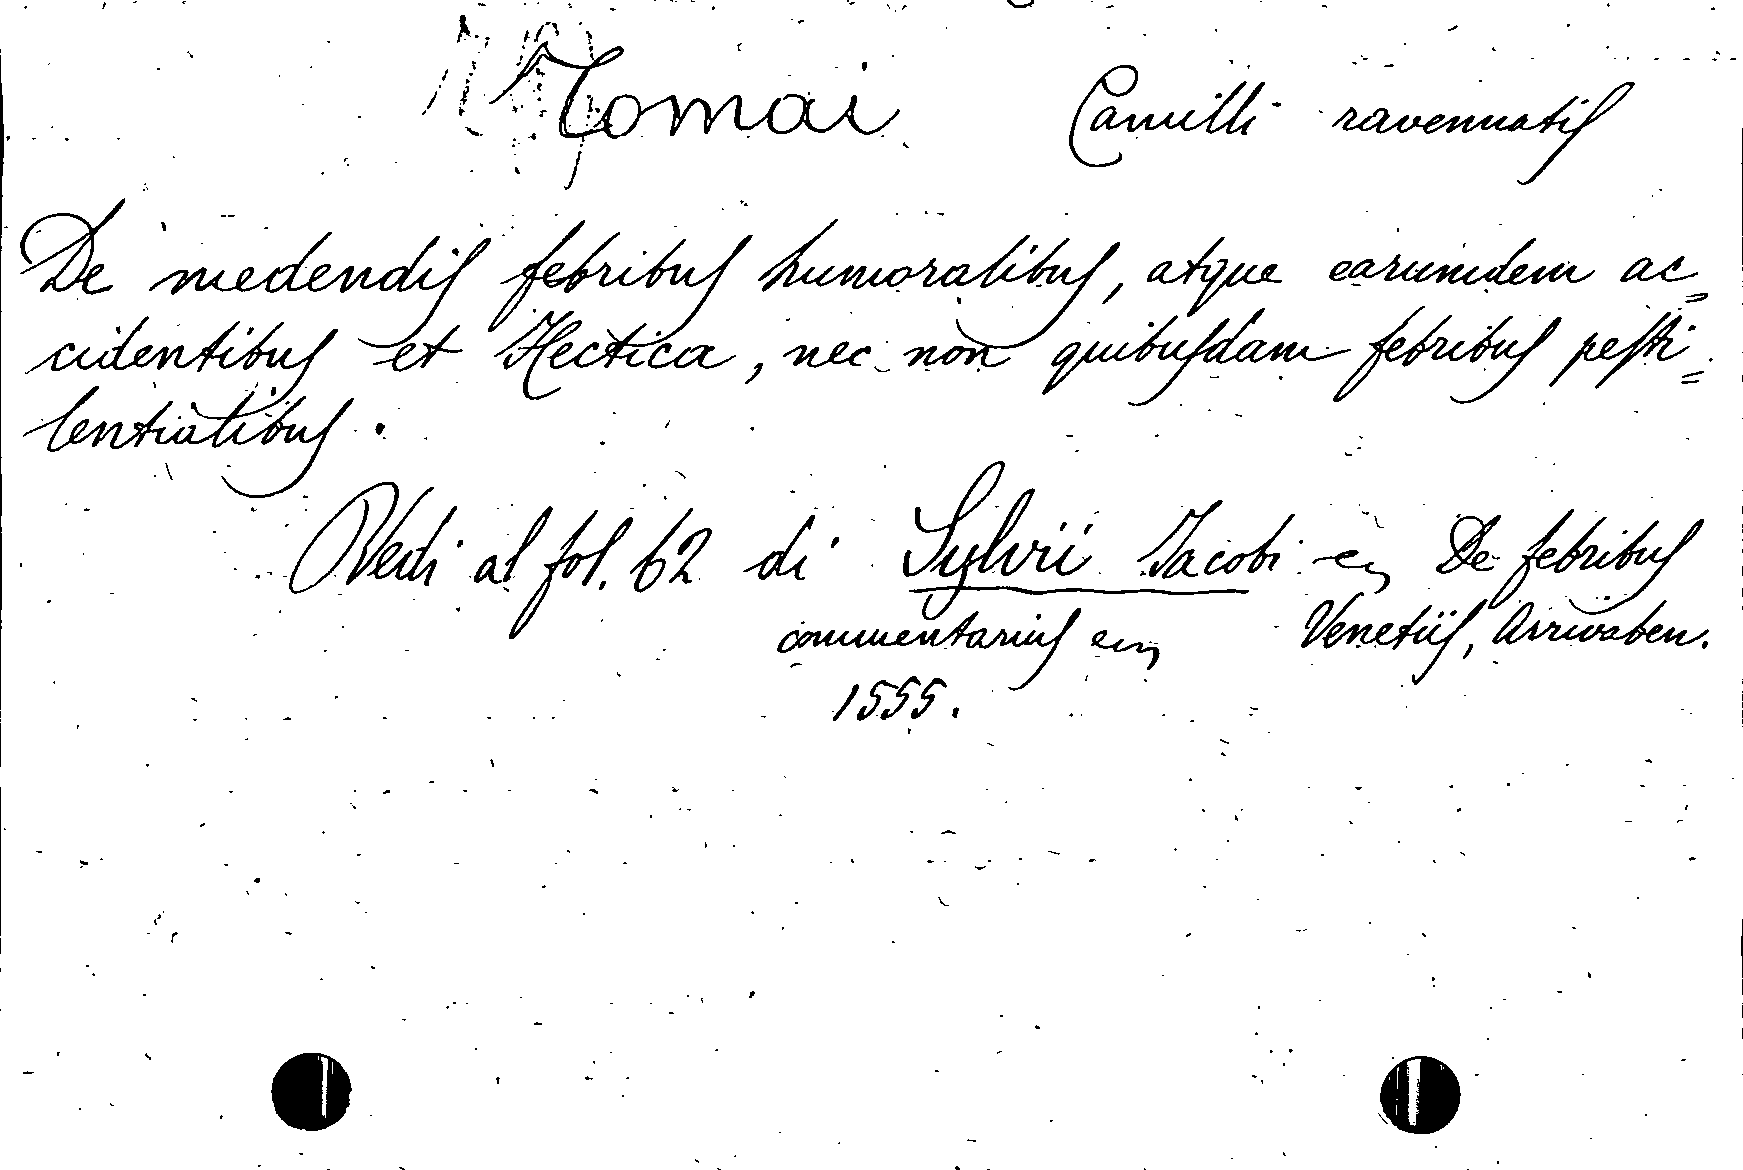 Tomai Camilli ravennatis
De medendis febribus humoralibus, atque earumdem ac=
cidentibus et Hectica, nec non quibusdam febribus pesti=
lentialibus.
Vedi al fol. 62 di Sylvii Jacobi De febribus
commentarius Venetiis, Arrivaben.
1555.